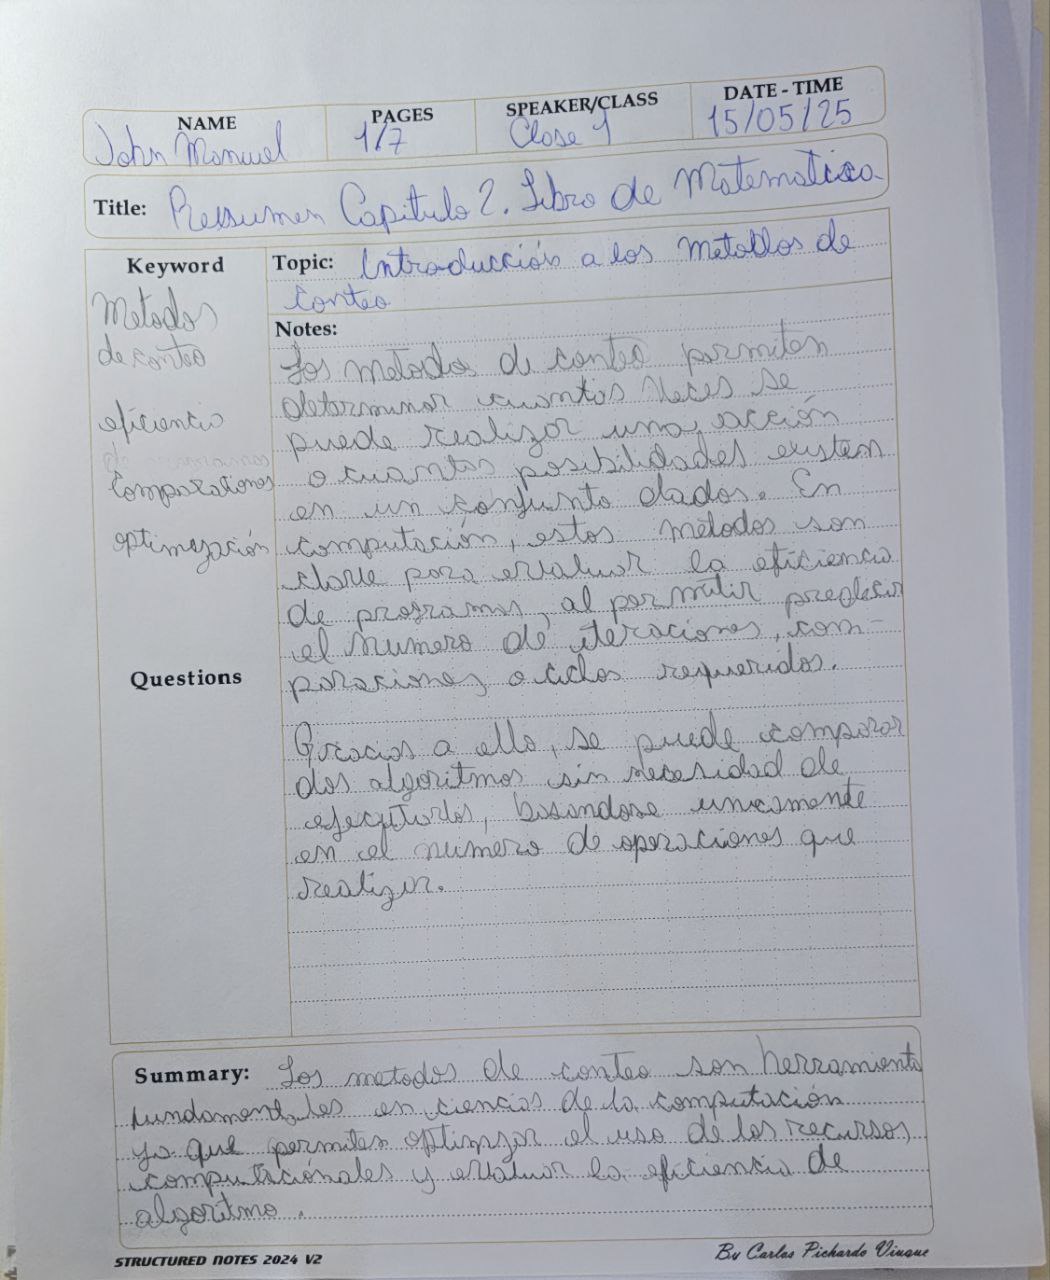 NAME PAGES SPEAKER/CLASS DATE - TIME
John Manuel 1/7 Clase 1 15/05/25
Title: Ressumen Capitulo 2. Libro de Matematica
Keyword
Metodos
de conteo
eficiencia
Comparationes
optimización
Questions
Topic: Introducción a los metodos de
conteo
Notes:
Los metodos de conteo permiten
determinar cuantas veces se
puede realizar una acción
o cuantas posibilidades existen
en un conjunto dados. En
computación, estos métodos son
clave para evaluar la eficiencia
de programas, al permitir predecir
el numero de iteraciones, com-
paraciones o ciclos requeridos.
Gracias a ello, se puede comparar
dos algoritmos sin necesidad de
ejecutarlos, basandose unicamente
en el numero de operaciones que
realizan.
Summary: Los metodos de conteo son herramienta
fundamentales en ciencias de la computación
ya que permiten optimizar el uso de los recursos
computacionales y evaluar la eficiencia de
algoritmo.
STRUCTURED NOTES 2024 V2 By Carlos Pichardo Viuque